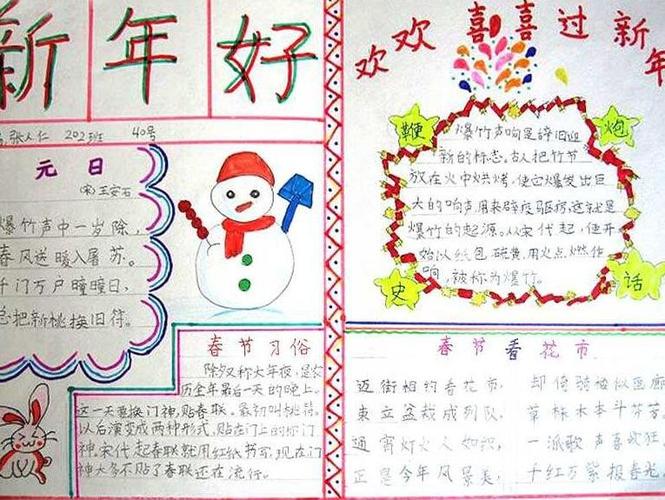 新年好
张人仁 202班 40号
元日
(宋)王安石
爆竹声中一岁除,
春风送暖入屠苏。
千门万户曈曈日,
总把新桃换旧符。
春节习俗
除夕又称大年夜,是农
历全年最后一天的晚上。
这一天要换门神,贴春联。最初叫桃符。
以后演变成两种形式,贴在门上的称门
神,宋代起春联就用红纸书写,现在门
神大多不贴了春联还在流行。
欢欢喜喜过新年
鞭炮史话
爆竹声响是辞旧迎
新的标志,古人把竹节
放在火中烘烤,使它爆发出巨
大的响声用来辟疫驱疠,这就是
爆竹的起源。从宋代起,便开
始以纸包硫黄,用火点燃作
响,被称为爆竹。
春节看花市
迈街相约看花市,
却倚骑楼似画廊
束立盆栽成列队,
草株木本斗芬芳
通宵灯火人如织,
一派歌声喜欲狂
正是今年风景美,
千红万紫报春光